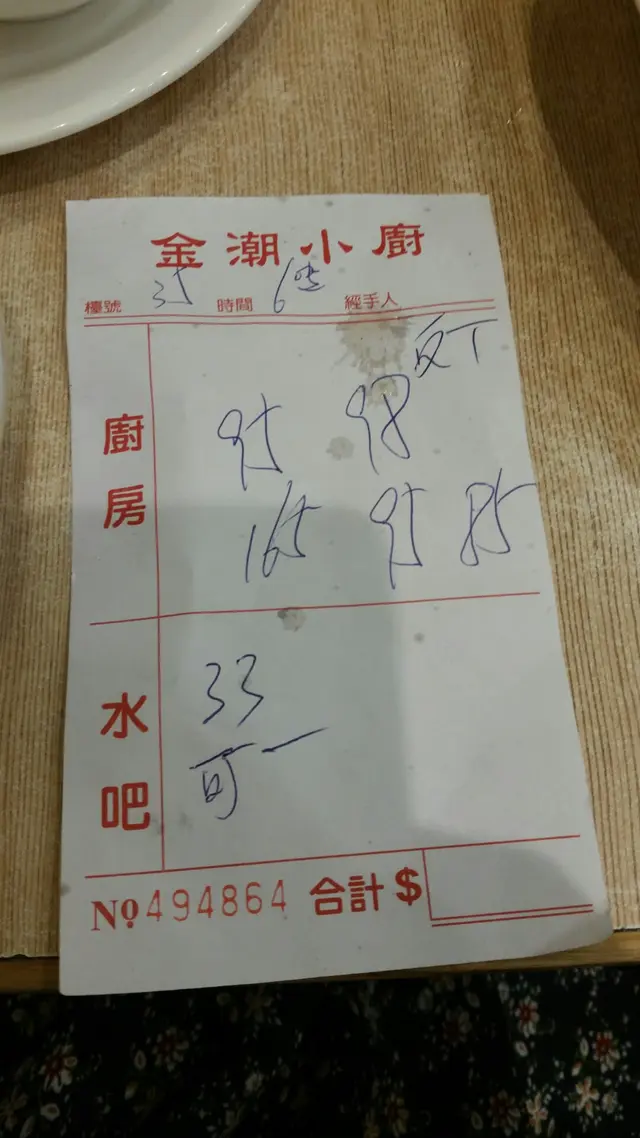 金潮小廚
檯號 35 時間 6 經手人
廚房
反丁
95 98
165 95 85
水吧
33
可一
No 494864 合計 $